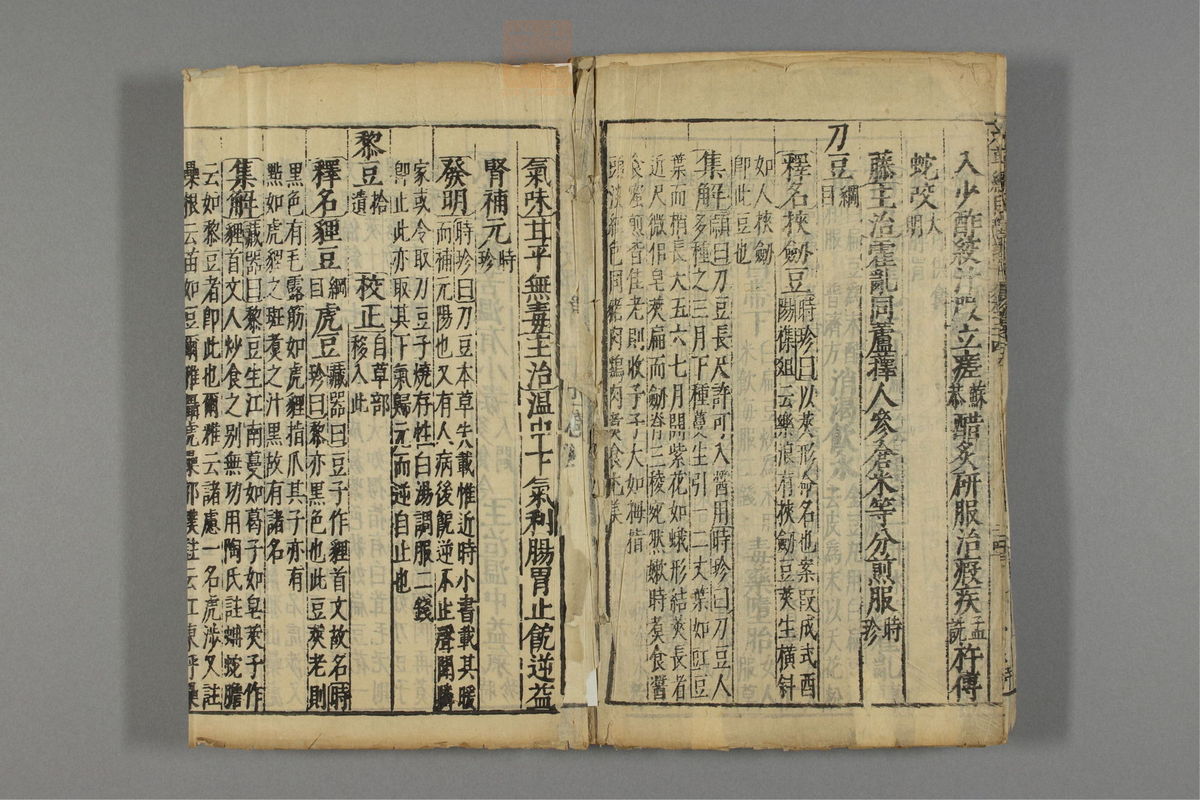 入少酢絞汁服立瘥蘇恭醋炙研服治瘕疾孟詵杵傅
蛇咬大明
藤主治霍亂同蘆蘀人參倉米等分煎服時珍
刀豆綱目
釋名挾劍豆時珍曰以莢形命名也案段成式酉
陽雜俎云樂浪有挾劍豆莢生橫斜
如人挾劍
即此豆也
集解頴曰刀豆長尺許可入醬用時珍曰刀豆人
多種之三月下種蔓生引一二丈葉如豇豆
葉而稍長大五六七月開紫花如蛾形結莢長者
近尺微似皂莢扁而劍脊三稜宛然嫩時煮食醬
食蜜煎皆佳老則收子子大如拇指
頭淡紅色同豬肉雞肉煮食尤美
氣味甘平無毒主治溫中下氣利腸胃止飽逆益
腎補元時珍
發明時珍曰刀豆本草失載惟近時小書載其暖
而補元陽也又有人病後飽逆不止聲聞鄰
家或令取刀豆子燒存性白湯調服二錢
即止此亦取其下氣歸元而逆自止也
黎豆拾遺校正自草部移入此
釋名貍豆綱目虎豆藏器曰豆子作貍首文故名時
珍曰黎亦黑色也此豆莢老則
黑色有毛露筋如虎貍指爪其子亦有
點如虎貍之斑煮之汁黑故有諸名
集解藏器曰黎豆生江南蔓如葛子如皂莢子作
貍首文人炒食之別無功用陶氏註蚺蛇膽
云如黎豆者即此也爾雅云諸慮一名虎涉又註
櫐根云苗如豆爾雅欇虎櫐郭璞註云江東呼櫐